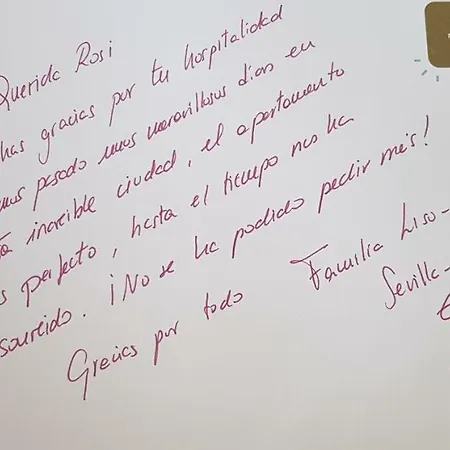 Querida Rosi
has gracias por tu hospitalidad
mos pasado unos maravillosos días en
tá increíble ciudad, el apartamento
s perfecto, hasta el tiempo nos ha
sonreido. ¡No se ha podido pedir más!
Gracias por todo
Familia Liso-
Sevilla-